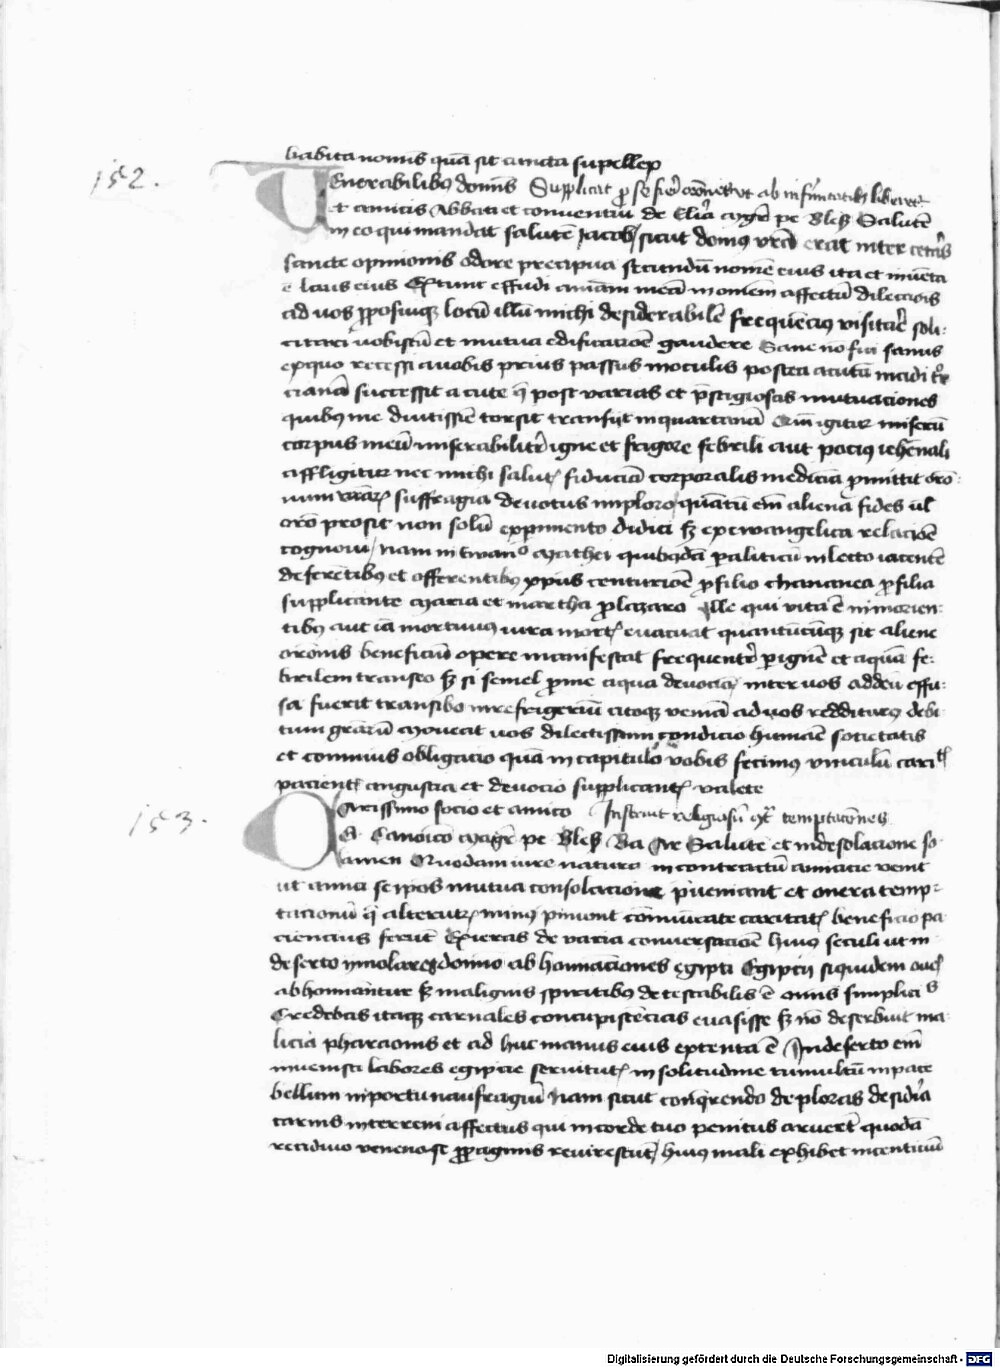 habita nominis quā sit cuncta supellex
152.
Venerabilibꝯ dominis Supplicat ꝓ se fieri oronem ut ab infirmitatibus liberetur
et amicis Abbati et conventui de Elia magr̄ pe Bleß Salutē
in eo qui mandat salutē Jacob sicut domꝯ vrā erat inter ceterꝭ
sancte opinionis odore precipua secundū nomē eius ita et inventa
ē laus eius Ex tunc effudi animam meā in omem affectū dilectiois
ad vos ꝓposuiqꝫ locū illū michi desiderabilē frequēcius visitare soli-
citari vobiscū et mutua edificacioē gaudere Sane nō fui sanus
exquo recessi a vobis prius passus in oculis postea acutā incidi
cianā successit acute q̄ post varias et p̄stigiosas mutuaciones
quibꝯ me diutissie torsit transfijt in quartanā Cum igitur miserū
corpus meū miserabiliter igne et frigore febrili aut pociꝯ iehēnali
affligitur nec michi salutꝭ fiduciā corporalis medicīa ꝓmittit orō-
num vrarꝝ suffragia devotus imploro quantū em̄ alienā fides ul̄
orō prosit non solū experimento didici sꝫ ex ewangelica relacioē
cognovi nam in Ewan° Mathei quibꝯdā paliticū in lecto iacentē
deferētibꝯ et offerentibꝯ xpus centurioē ꝓ filio chananea ꝓ filia
supplicante Maria et martha ꝓ lazaro Ille qui vita ē in morien-
tibꝯ aut iā mortuus iura mortꝭ evacuat quantūcūqꝫ sit aliene
oronis beneficiū opere manifestat frequentr̄ ꝑ ignē et aquā fe-
brilem transeo sꝫ si semel ꝓ me aqua devocionis inter vos ad deū effu-
sa fuerit transibo in refrigeriū citoqꝫ veniā ad vos redditurꝯ debi
tum gratiarū Moveat vos dilectissimi condicio humāe societatis
et communis obligacio quā in capitulo vobis fecimꝯ vinculū
pacientꝭ angustia et devocio supplicantꝭ valete
153.
Carissimo socio et amico Instruit religiosū temptaciones
G. Canoico Magr̄ pe Bleß Ba Ar Salutē et in desolacione so
lamen Quodam iure nature in contractū amicicie venit
ut amici se ipos mutua consolacione p̄veniant et onera temp-
tacionū q̄ alterutꝝ minꝯ communicate caritatꝭ beneficio pa
ciencius ferūt Exieras de varia conversacioē huiꝯ seculi ut in
deserto ymolares domino abhominaciones egipti Egiptij siquidem oves
abhominantur sꝫ malignis spiritibus detestabilis ē omnis simplicitas
Credebas itaqꝫ carnales concupiscēcias evasisse sꝫ nō deserbuit ma-
licia pharaonis et ad huc manus eius extenta ē In deserto em̄
invenisti labores egipcie servitutꝭ in solitudine tumultū in pace
bellum in portu naufragiū Nam sicut conquerendo deploras desideria
carnis in terreni affectus qui in corde tuo penitus aruerūt quodā
recidivo veneno se ꝓpaginis revirescūt huiꝯ mali exhibet incentivū
Digitalisierung gefördert durch die Deutsche Forschungsgemeinschaft - DFG